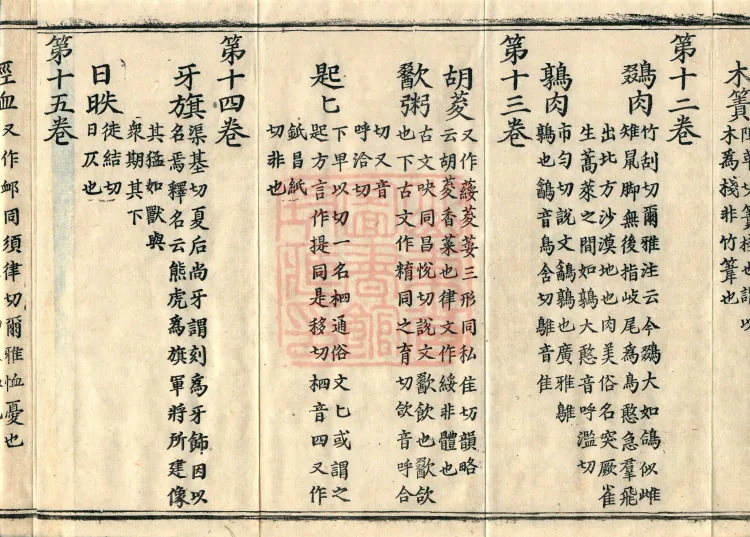 木簣
切簣棧也謂以
木為棧非竹葦也
第十二卷
鵽肉
竹刮切爾雅注云今鵽大如鴿似雌
雉鼠脚無後指岐尾為鳥憨急羣飛
出北方沙漠地也肉美俗名突厥雀
生蒿萊之間如鶉大憨音呼濫切
鶉肉
市勻切說文鶉也廣雅鵻
鶉也音烏含切鵻音隹
第十三卷
胡荾
又作荾荽三形同私隹切韻略
云胡荾香菜也律文作綏非體也
歠粥
古文吷同昌悅切說文歠飲也歠欱
也下古文作精同之育切欱音呼合
切又音
呼洽切
匙匕
下卑以切一名柶通俗文匕或謂之
匙方言作提同是移切柶音四又作
昌紙
切非也
第十四卷
牙旗
渠基切夏后尚牙謂刻為牙飾因以
名焉釋名云熊虎為旗軍將所建像
其猛如獸與
衆期其下
日昳
徒結切
日仄也
第十五卷
血
又作卹同須律切爾雅恤憂也